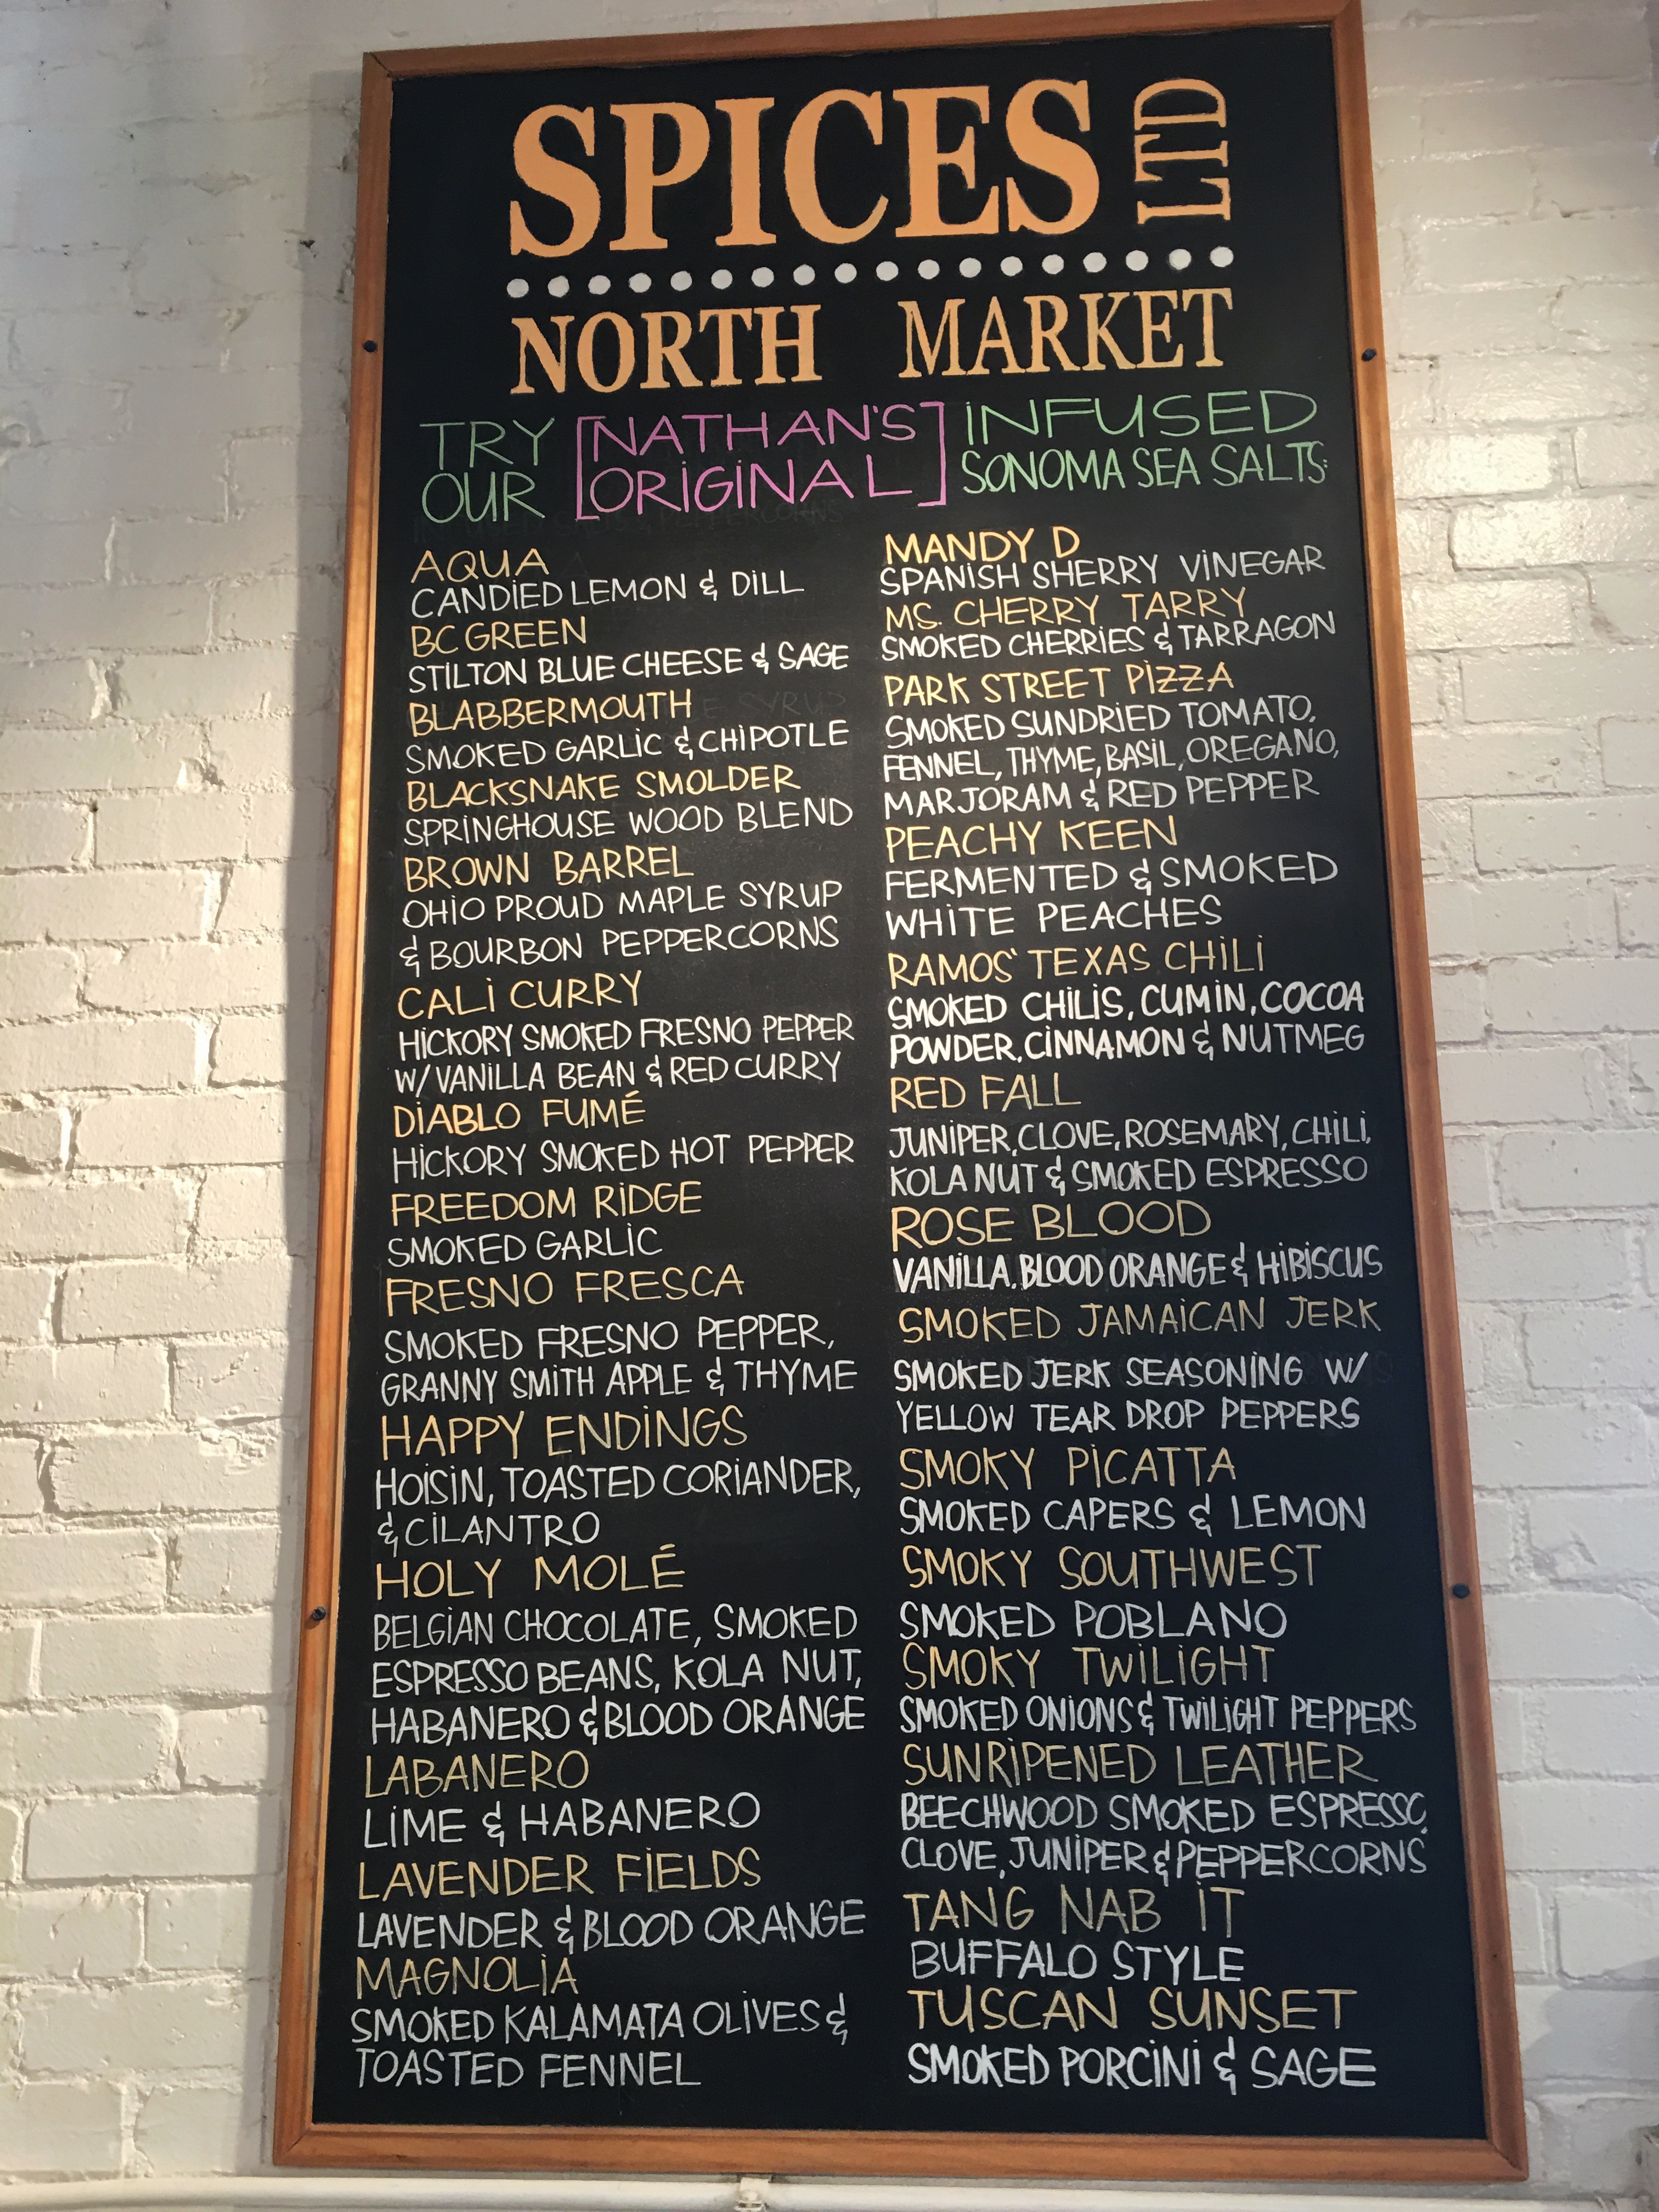 SPICES LTD
NORTH MARKET
TRY OUR [NATHAN'S ORIGINAL] INFUSED SONOMA SEA SALTS:
AQUA
CANDIED LEMON & DILL
BC GREEN
STILTON BLUE CHEESE & SAGE
BLABBERMOUTH
SMOKED GARLIC & CHIPOTLE
BLACKSNAKE SMOLDER
SPRINGHOUSE WOOD BLEND
BROWN BARREL
OHIO PROUD MAPLE SYRUP
& BOURBON PEPPERCORNS
CALI CURRY
HICKORY SMOKED FRESNO PEPPER
W/ VANILLA BEAN & RED CURRY
DIABLO FUMÉ
HICKORY SMOKED HOT PEPPER
FREEDOM RIDGE
SMOKED GARLIC
FRESNO FRESCA
SMOKED FRESNO PEPPER,
GRANNY SMITH APPLE & THYME
HAPPY ENDINGS
HOISIN, TOASTED CORIANDER,
& CILANTRO
HOLY MOLÉ
BELGIAN CHOCOLATE, SMOKED
ESPRESSO BEANS, KOLA NUT,
HABANERO & BLOOD ORANGE
LABANERO
LIME & HABANERO
LAVENDER FIELDS
LAVENDER & BLOOD ORANGE
MAGNOLIA
SMOKED KALAMATA OLIVES &
TOASTED FENNEL
MANDY D
SPANISH SHERRY VINEGAR
MS. CHERRY TARRY
SMOKED CHERRIES & TARRAGON
PARK STREET PIZZA
SMOKED SUNDRIED TOMATO,
FENNEL, THYME, BASIL, OREGANO,
MARJORAM & RED PEPPER
PEACHY KEEN
FERMENTED & SMOKED
WHITE PEACHES
RAMOS' TEXAS CHILI
SMOKED CHILIS, CUMIN, COCOA
POWDER, CINNAMON & NUTMEG
RED FALL
JUNIPER, CLOVE, ROSEMARY, CHILI,
KOLA NUT & SMOKED ESPRESSO
ROSE BLOOD
VANILLA, BLOOD ORANGE & HIBISCUS
SMOKED JAMAICAN JERK
SMOKED JERK SEASONING W/
YELLOW TEAR DROP PEPPERS
SMOKY PICATTA
SMOKED CAPERS & LEMON
SMOKY SOUTHWEST
SMOKED POBLANO
SMOKY TWILIGHT
SMOKED ONIONS & TWILIGHT PEPPERS
SUNRIPENED LEATHER
BEECHWOOD SMOKED ESPRESSO,
CLOVE, JUNIPER & PEPPERCORNS
TANG NAB IT
BUFFALO STYLE
TUSCAN SUNSET
SMOKED PORCINI & SAGE